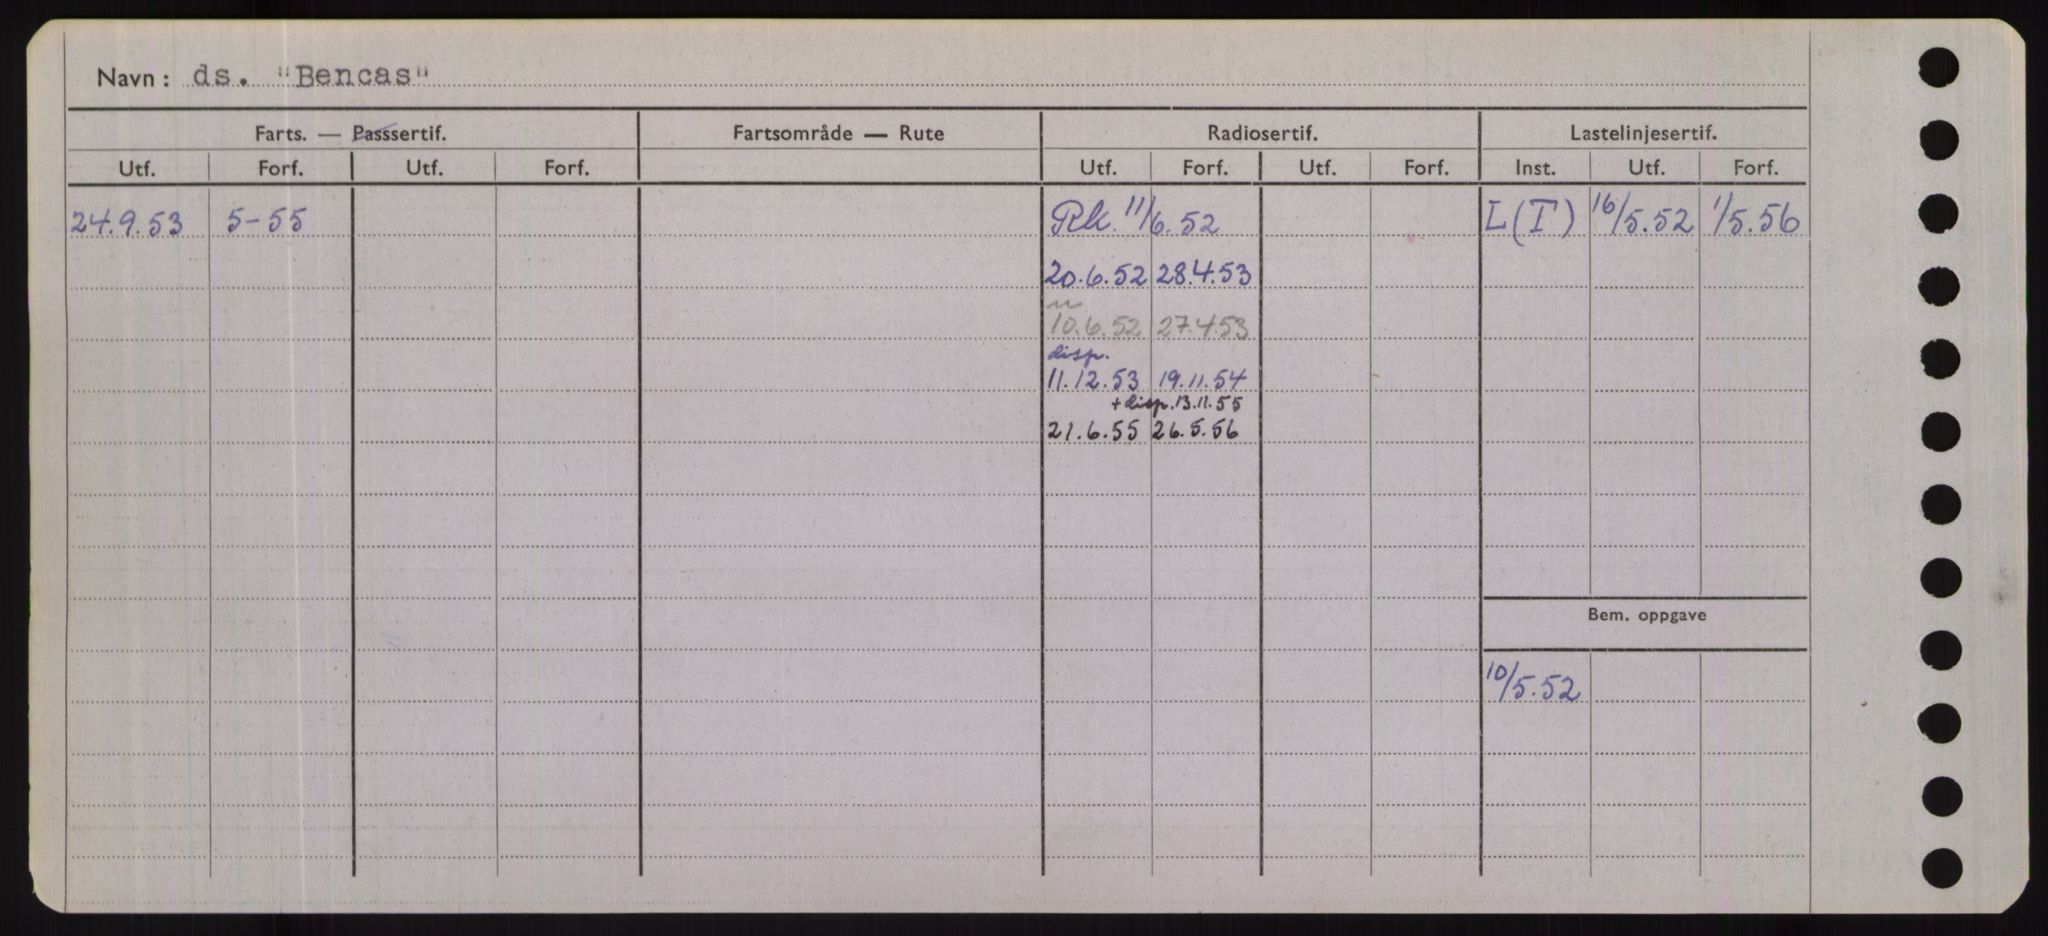 Navn: ds. "Bencas"
Farts. — Passsertif. Fartsområde — Rute Radiosertif. Lastelinjesertif.
Utf. Forf. Utf. Forf. Utf. Forf. Utf. Forf. Inst. Utf. Forf.
24.9.53 5-55 Rk. 11/6.52 L(T) 16/5.52 1/5.56
20.6.52 28.4.53
10.6.52 27.4.53
disp.
11.12.53 19.11.54
+ disp. 13.11.55
21.6.55 26.5.56
Bem. oppgave
10/5.52